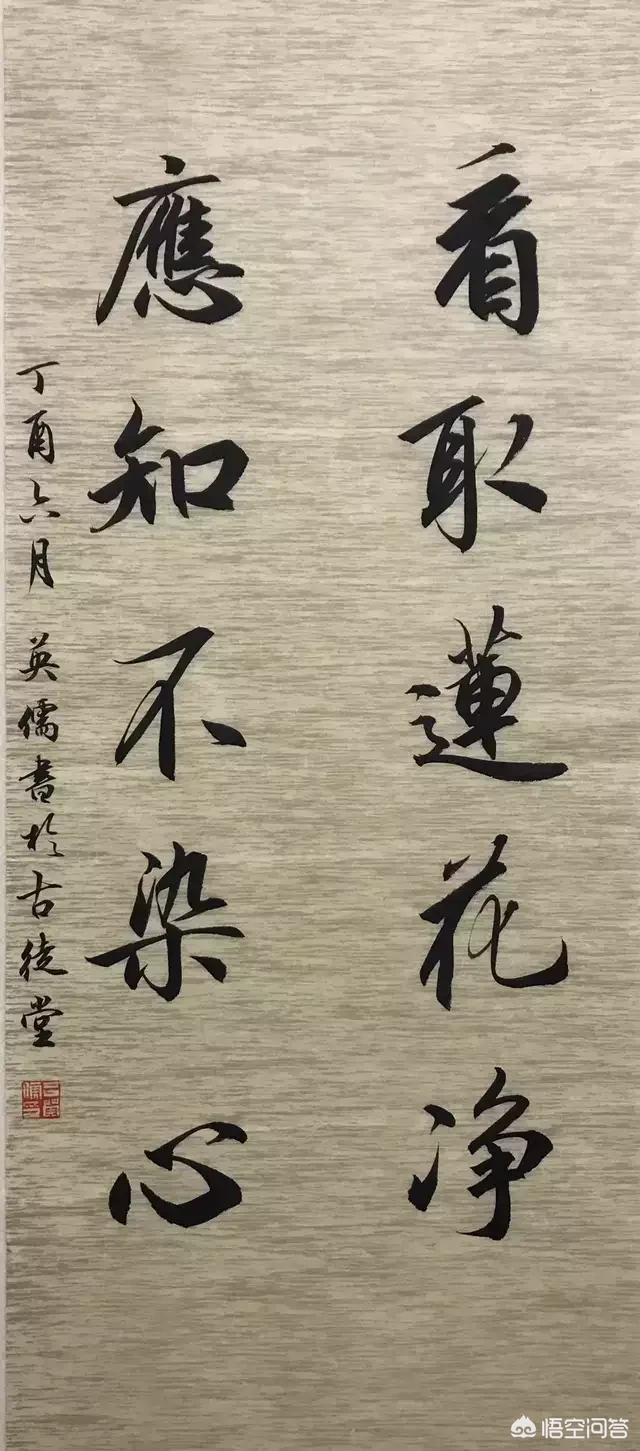 看取蓮花净
應知不染心
丁酉六月 英儒書於古徒堂
悟空问答